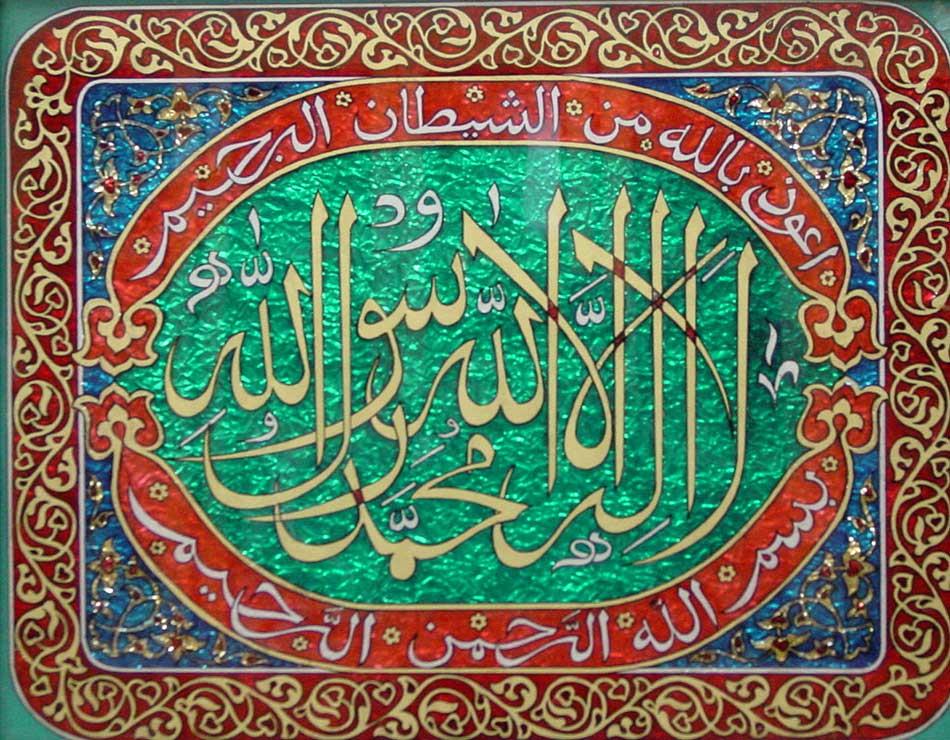 اعوذ بالله من الشيطان الرجيم
لا اله الا الله محمد رسول الله
بسم الله الرحمن الرحيم